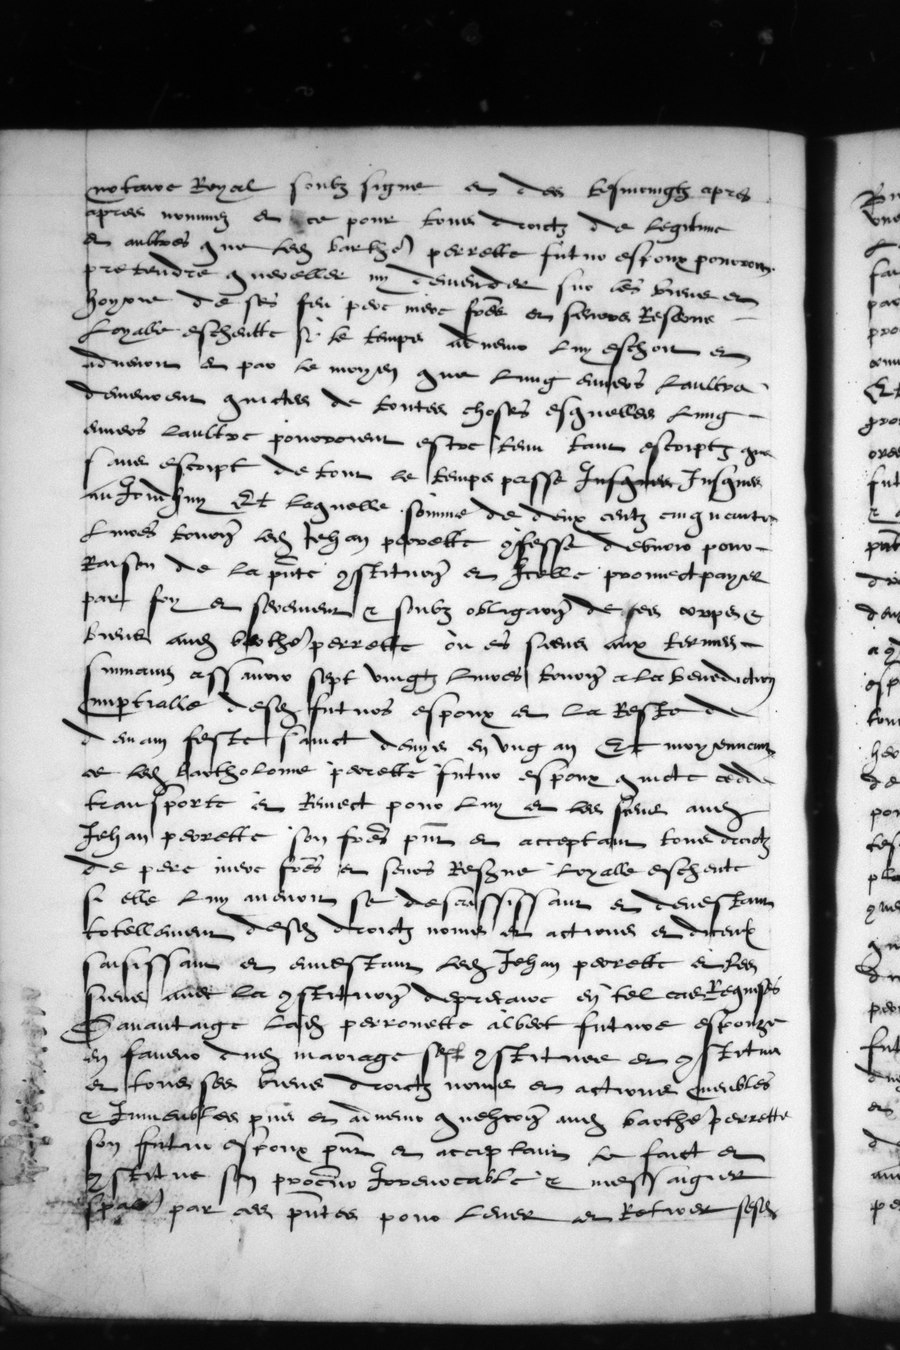 notaire Royal soubz signe et des tesmoingtz apres
apres nommez et ce pour tous droictz de legitime
et aultres que led barthe) perrette futur espoux pourroit
pretendre quereller ny demander sur les biens et
hoyrie de ses feu pere mere freres et seurs Reserve
Loyalle escheutte si le temps advenir luy eschoit et
advenoit et par le moyen que lung envers laultre
demeurent quictes de toutes choses esquelles lung
envers laultre pourroient estre tenu tant escriptz que
sans escript de tout le temps passe Jusques
au Jourdhuy Et laquelle somme de deux centz cinquante
Livres tourn led Jehan perrette confesse debvoir pour
Raison de la pnte constitution et Icelle promect payer
par foy et serement & soubz obligation de ses corps &
biens aud barthe) perrette ou es siens aux termes
suivans assavoir sept vingtz livres tourn a la benediction
nuptialle desd futurs espoux et la Reste
de feste sainct denys en ung an Et moyennant
ce led bartholome perrette futur espoux quicte cedde
transporte et Remect pour luy et les siens aud
Jehan perrette son frere pnt et acceptant tous droictz
de pere mere freres et seurs Reserve loyalle escheute
si elle luy advenoit se dessaississant et devestant
totellement desd droictz noms et actions et diceulx
saisissant et investant led Jehan perrette et les
siens avec la constitution de precaire en tel cas Requises
Davantaige lad perronette albert future espouze
en faveur dud mariage sest constituee et constitue
et tous ses biens droictz noms et actions meubles
& Immeubles pns et advenir aud barthe) perrette
son futur espoux pnt et acceptant le faict et
constitue son procureur Irrevocable & messaigier
spal par ces pntes pour lever et Retirer sesd